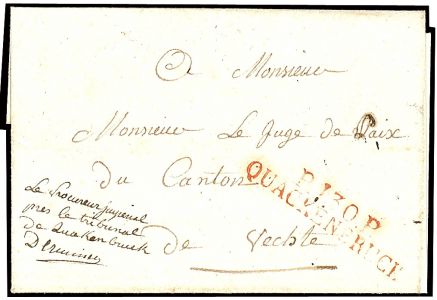 A Monsieur
Monsieur Le Juge de Paix
du Canton
de Vechte
P.130.P.
QUACKENBRUCK
Le Procureur imperial
près le tribunal
de Quakenbruck